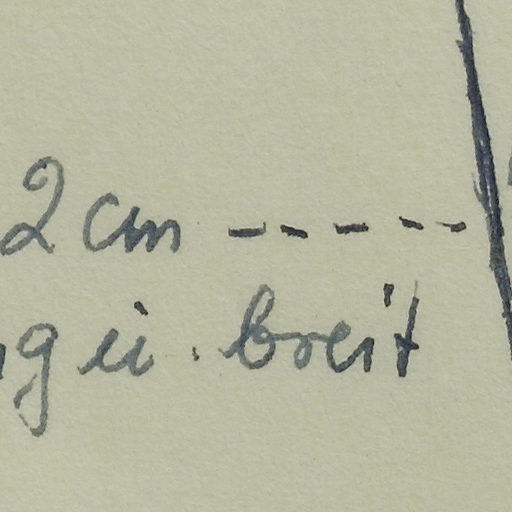 2 cm -----
g u. breit